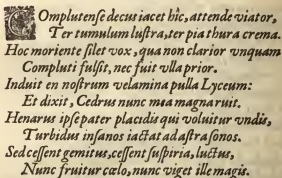 COmplutense decus iacet hîc, attende viator,
Ter tumulum lustra, ter pia thura crema.
Hoc moriente silet vox, qua non clarior vnquam
Compluti fulsit, nec fuit vlla prior.
Induit en nostrum velamina pulla Lyceum:
Et dixit, Cedrus nunc mea magna ruit.
Henarus ipse pater placidis qui voluitur vndis,
Turbidus insanos iactat ad astra sonos.
Sed cessent gemitus, cessent suspiria, luctus,
Nunc fruitur cœlo, nunc viget ille magis.